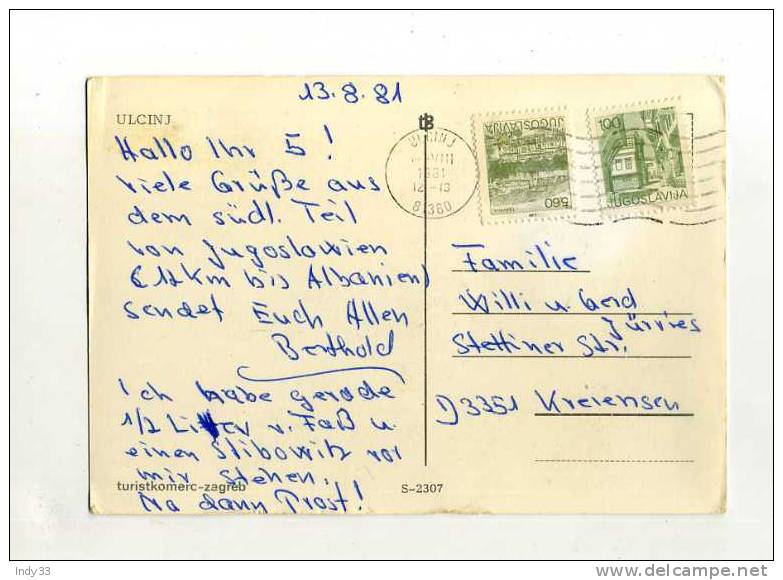 13.8.81
ULCINJ
Hallo Ihr 5!
viele Grüße aus
dem südl. Teil
von Jugoslawien
(12km bis Albanien)
sendet Euch Allen
Berthold
Ich habe gerade
1/2 Liter v. Faß u.
einen Slibowitz vor
mir stehen.
Na dann Prost!
turistkomerc-zagreb
S-2307
ULCINJ
VIII
1981
12-13
81360
JUGOSLAVIJA
5,60
1,00
JUGOSLAVIJA
Familie
Willi u. Gerd
Jürries
Stettiner Str.
D3351 Kreiensen
Indy33
www.delcampe.net